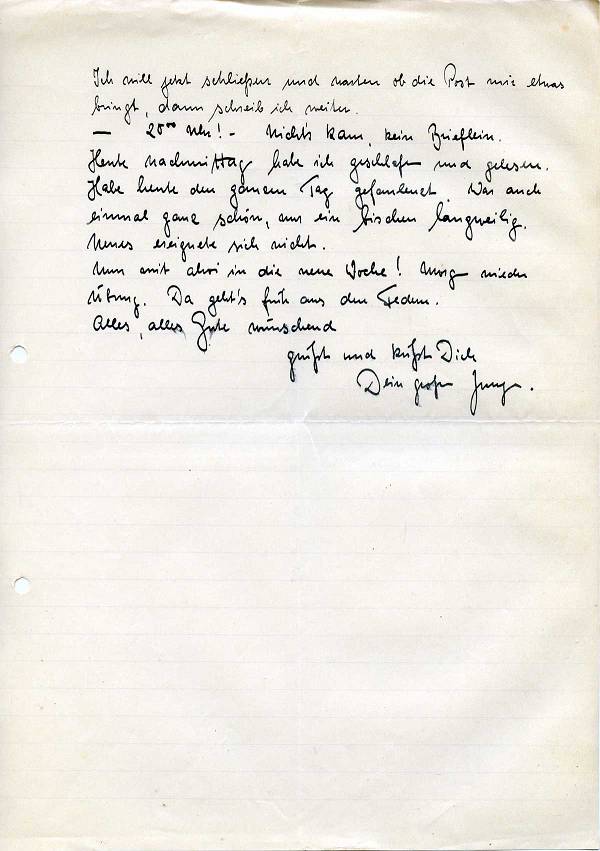 Ich will jetzt schließen und warten ob die Post mir etwas
bringt, dann schreib ich weiter.
— 20⁰⁰ Uhr! - Nichts kam, kein Brieflein.
Heute nachmittag habe ich geschlafen und gelesen.
Habe heute den ganzen Tag gefaulenzt. War auch
einmal ganz schön, nur ein bischen langweilig.
Neues ereignete sich nicht.
Nun mit in die neue Woche! Morg wieder
Übung. Da geht's früh aus den Federn.
Alles, alles Gute wünschend
grüßt und küßt Dich
Dein großer Junge.